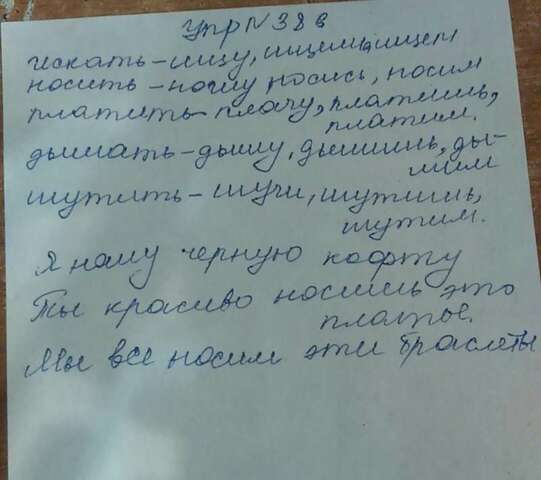 Упр N 38 в
искать – ищу, ищешь, ищем
носить – ношу носишь, носим
платить – плачу, платишь,
платим.
дышать – дышу, дышишь, ды-
шим
шутить – шучу, шутишь,
шутим.
Я ношу черную кофту
Ты красиво носишь это
платье.
Мы все носим эти браслеты